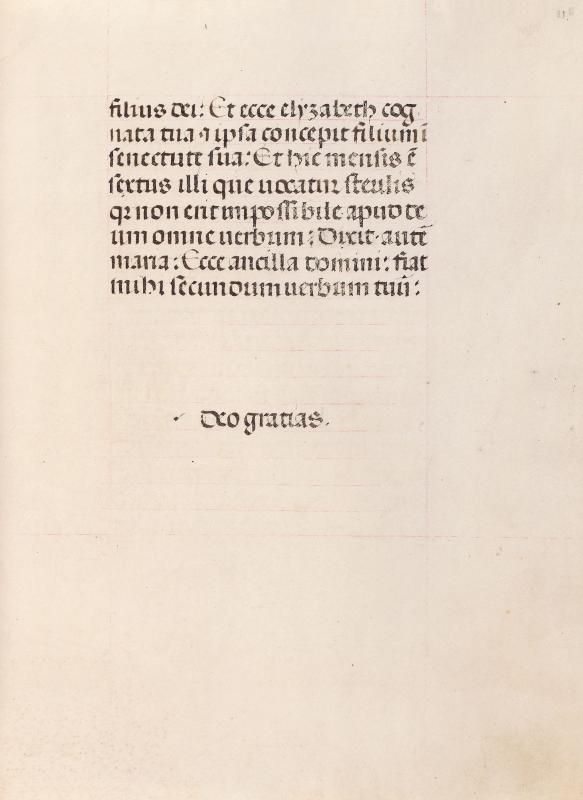 filius dei: Et ecce elyzabeth cog
nata tua ⁊ ipsa concepit filium ī
senectute sua: Et hic mensis ē
sextus illi que uocatur sterilis
qꝛ non erit impossibile apud de
um omne uerbum: Dixit autē
maria: Ecce ancilla domini: fiat
mihi secundum uerbum tuū:
Deo gratias.